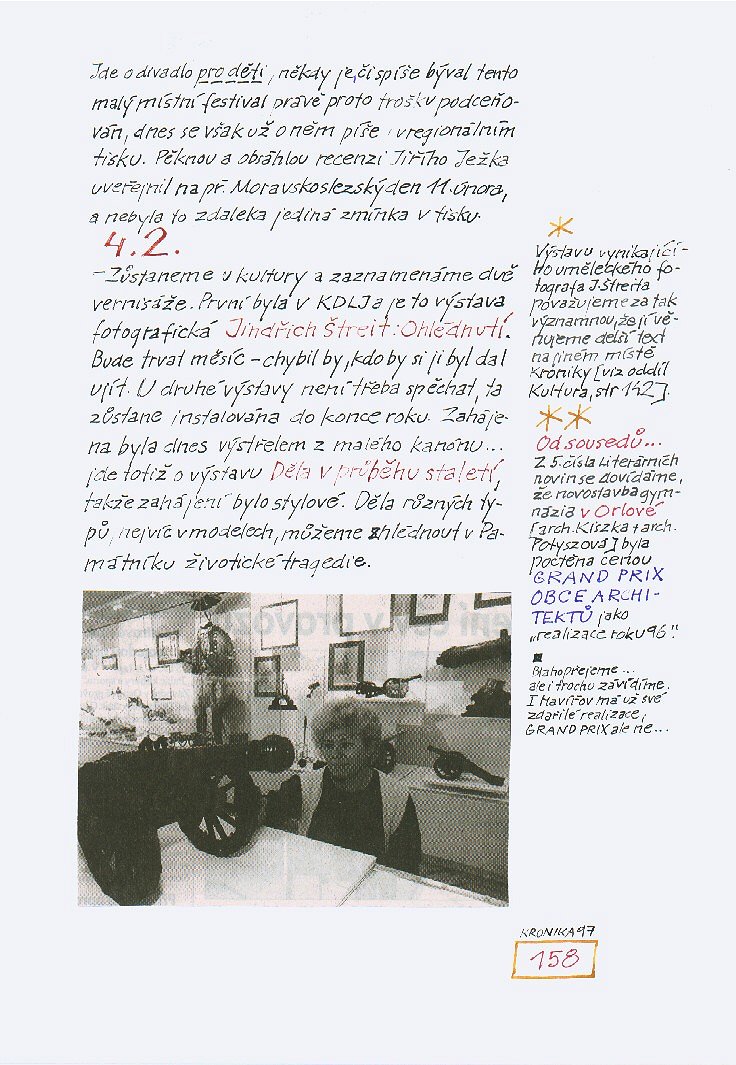 Jde o divadlo pro děti, někdy je, či spíše býval tento
malý místní festival právě proto trošku podceňo-
ván, dnes se však už o něm píše i v regionálním
tisku. Pěknou a obsáhlou recenzi Jiřího Ježka
uveřejnil např. Moravskoslezský den 11. února,
a nebyla to zdaleka jediná zmínka v tisku.
4.2.
- Zůstaneme u kultury a zaznamenáme dvě
vernisáže. První byla v KDLJ a je to výstava
fotografická Jindřich Štreit: Ohlédnutí.
Bude trvat měsíc - chybil by, kdo by si ji byl dal
ujít. U druhé výstavy není třeba spěchat, ta
zůstane instalována do konce roku. Zaháje-
na byla dnes výstřelem z malého kanónu...
jde totiž o výstavu Děla v průběhu staletí,
takže zahájení bylo stylové. Děla různých ty-
pů, nejvíc v modelech, můžeme zhlédnout v Pa-
mátníku životické tragedie.
*
Výstavu vynikající-
ho uměleckého fo-
tografa J Štreita
považujeme za tak
významnou, že jí vě-
nujeme delší text
na jiném místě
Kroniky [viz oddíl
Kultura, str 142].
**
Od sousedů...
Z 5. čísla Literárních
novin se dovídáme,
že novostavba gym-
názia v Orlové
[arch. Kiszka + arch.
Potyszová] byla
poctěna cenou
GRAND PRIX
OBCE ARCHI-
TEKTŮ jako
„realizace roku 96".
Blahopřejeme...
ale i trochu závidíme.
I Havířov má už své
zdařilé realizace,
GRAND PRIX ale ne...
KRONIKA 97
158